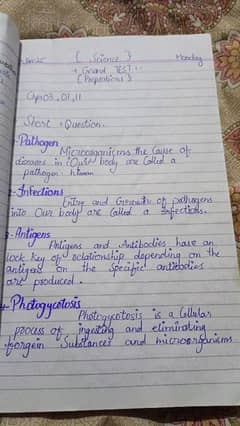 { Science }
Monday
→ Grand TEST..
(Prepration)
Cp#03,01,11
Short : Question.
1- Pathogen
Microorganisms the Cause of
diseases in Our body are Called a
pathogen. human
2- Infections
Entry and Growth of pathogens
into Our body are Called a infections.
3- Antigens
Antigens and Antibodies have an
lock key of relationship depending on the
antigens on the Specific antibodies
are produced.
4- Phatogycotosis
Phatogycotosis is a Cellular
process of ingesting and eliminating
forgein Substances and microorganisms